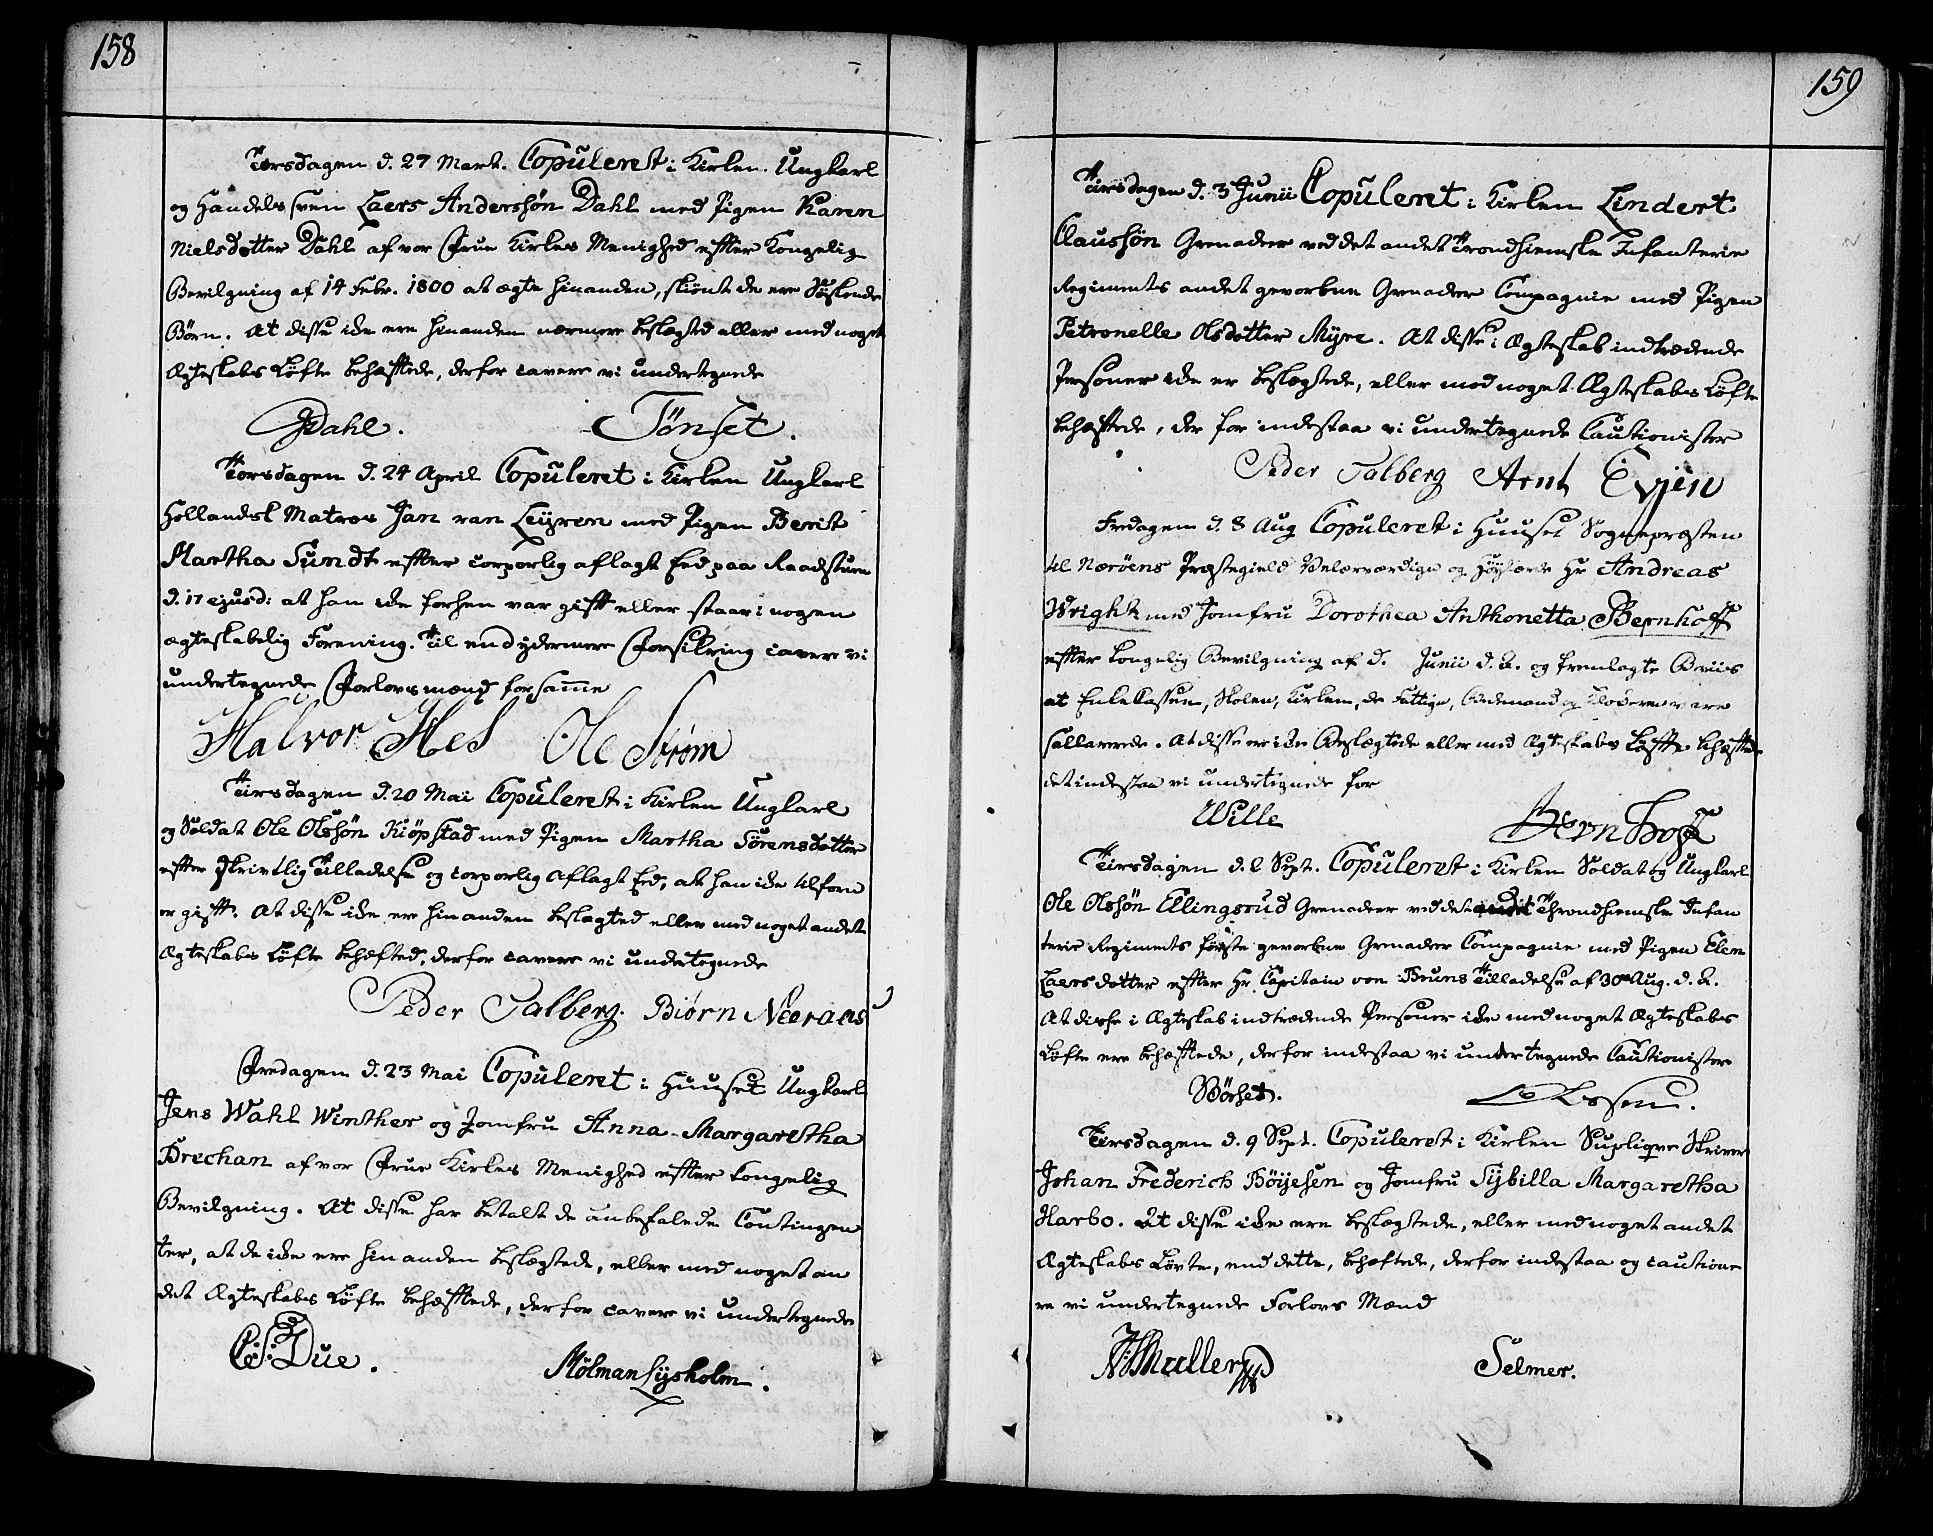 158
Torsdagen d. 27 Mart. Copuleret i Kirken Ungkarl
og Handelssven Laers Anderssøn Dahl med Pigen Karen
Nielsdotter Dahl af vor Frue Kirkes Menighed efter Kongelig
Bevilgning af 14 Febr. 1800 at ægte hinanden, skiønt de ere Søskende
Børn. At disse icke ere hinanden nærmere beslægted eller med noget
Ægteskabs Løfte behæftede, derfor cavere vi undertegnede
Dahl. Tönset.
Torsdagen d. 24 April Copuleret i Kirken Ungkarl
Hollandsk Matros Jan van Leyren med Pigen Berit
Martha Sundt efter corporlig aflagt Eed paa Raadstuen
d. 17 ejusd: at han icke forhen var gift eller staar i nogen
ægteskabelig Forening. Til end ydermere Forsikring cavere vi
undertegnede Forlovsmænd for samme
Halvor Hes Ole Strøm
Tirsdagen d. 20 Mai Copuleret i Kirken Ungkarl
og Soldat Ole Olssøn Kiöpstad med Pigen Martha Sörensdotter
efter skrivtlig Tilladelse og corporlig aflagt Eed, at han icke tilforn
er gift. At disse icke ere hinanden beslægted eller med noget andet
Ægteskabs Løfte behæfted, derfor cavere vi undertegnede
Peder Salberg. Biørn Neeraas
Fredagen d. 23 Mai Copuleret i Huuset Ungkarl
Jens Wahl Winther og Jomfru Anna Margaretha
Brechan af vor Frue Kirkes Menighed efter kongelig
Bevilgning. At disse har betalt de anbefalede Contingen
ter, at de icke ere hinanden beslægtede, eller med noget an
det Ægteskabs Løfte behæftede, derfor cavere vi undertegnede
Due. Mölman Lysholm.
159
Tirsdagen d. 3 Junii Copuleret i Kirken Lindert
Claussøn Grenadeer ved det andet Trondhiemske Infanterie
Regiments andet gevorbne Grenadeer Compagnie med Pigen
Petronelle Olsdotter Myre. At disse i Ægteskab indtrædende
Personer icke er beslægtede, eller med noget Ægteskabs Løfte
behæftede, der for indestaa vi undertegnede Cautionister
Peder Salberg Arnt Evjen
Fredagen d. 8 Aug Copuleret i Huuset Sognepræsten
til Nærøens Præstegield Velærværdige og Høylærde Hr Andreas
Wright med Jomfru Dorothea Anthonetta Bernhoft
efter kongelig Bevilgning af d. Junii d. A. og fremlagte Beviis
at Enkekassen, Skolen, Kirken, de Fattige, Bedemand og Klokkeren vare
sallarerede. At disse ere icke Beslægtede eller med Ægteskabs Løfte behæftede
det indestaa vi undertegnede for
Wille Bernhoft
Tirsdagen d. 2 Sept. Copuleret i Kirken Soldat og Ungkarl
Ole Olssøn Ellingsrud Grenadeer ved det Throndhiemske Infan
terie Regiments første gevorbne Grenadeer Compagnie med Pigen Elen
Laersdotter efter Hr Capitain von Bruns Tilladelse af 30 Aug. d. A.
At disse i Ægteskab indtrædende Personer icke med noget Ægteskabs
Løfte ere behæftede, derfor indestaa vi undertegnede Cautionister
Börset.
Tirsdagen d. 9 Sept. Copuleret i Kirken Supliqve Skriver
Johan Frederich Böyesen og Jomfru Sybilla Margaretha
Harbo. At disse icke ere beslægtede, eller med noget andet
Ægteskabs Løvte, end dette, behæftede, derfor indestaa og cautione
re vi undertegnede Forlovs Mænd
Müller Selmer.